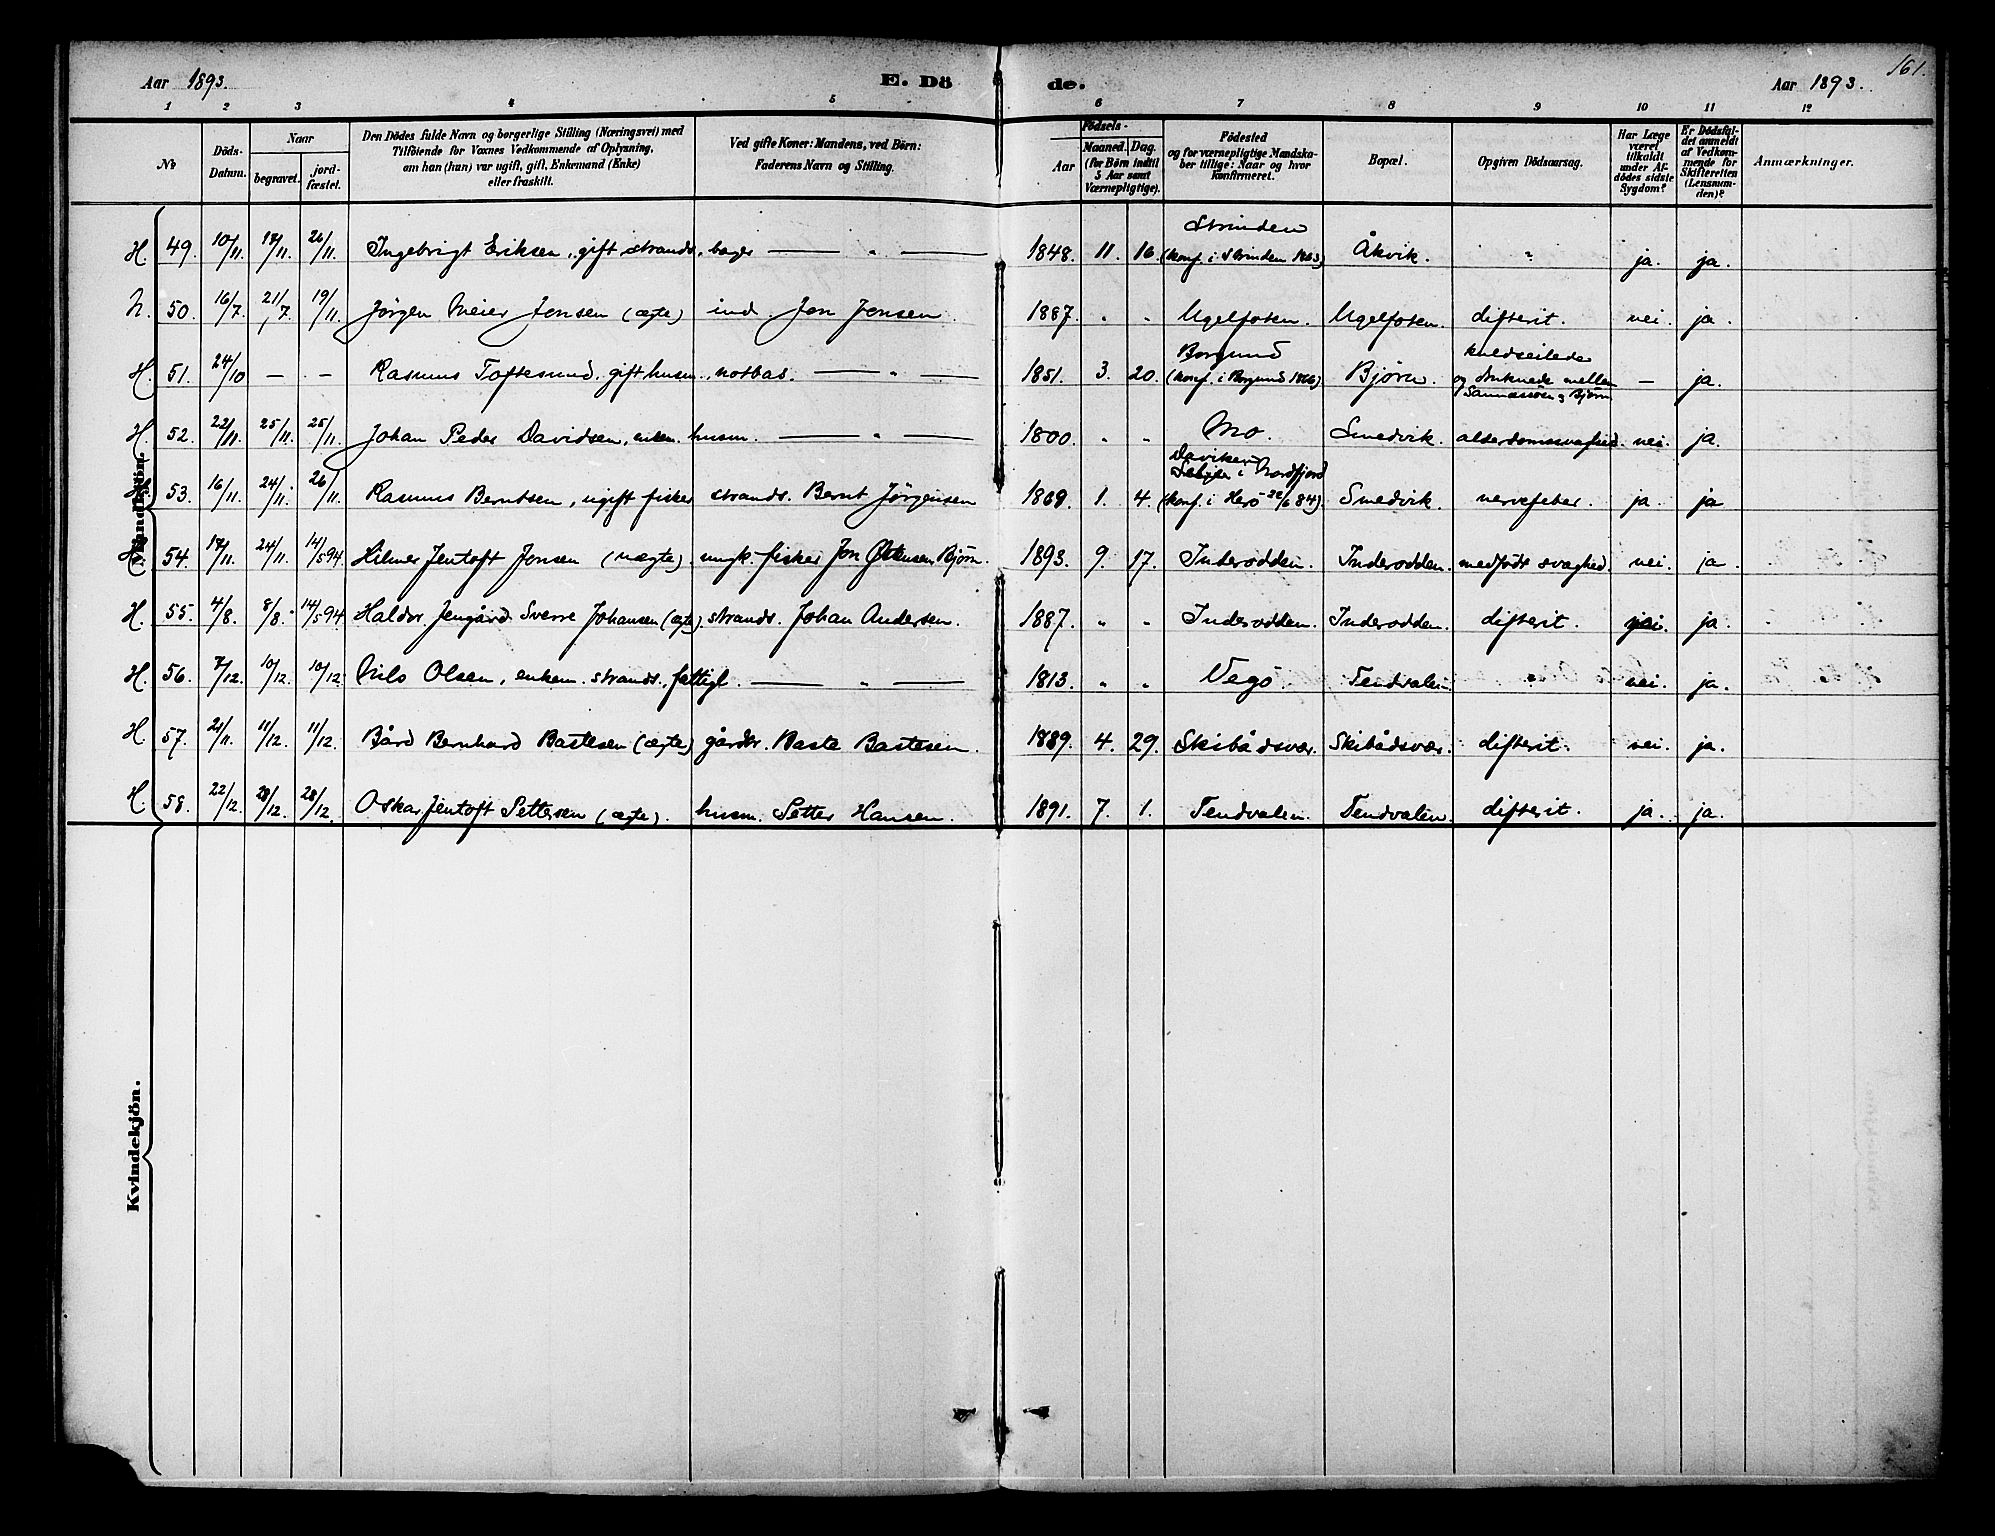 161.
Aar 1893. E. Dö de. Aar 1893.
1 2 3 4 5 6 7 8 9 10 11 12
№ Döds-Datum. Naar begravet. jord-fæstet. Den Dödes fulde Navn og borgerlige Stilling (Næringsvei) med Tilföiende for Voxnes Vedkommende af Oplysning, om han (hun) var ugift, gift, Enkemand (Enke) eller fraskilt. Ved gifte Koner: Mandens, ved Börn: Faderens Navn og Stilling. Födsels- Aar Maaned. Dag. (for Börn indtil 5 Aar samt Værnepligtige). Födested og for værnepligtige Mandska-ber tillige: Naar og hvor konfirmeret. Bopæl. Opgiven Dödsaarsag. Har Læge været tilkaldt under Af-dödes sidste Sygdom? Er Dödsfal-det anmeldt af Vedkom-mende for Skifteretten (Lensman-den)? Anmærkninger.
H. 49. 10/11. 17/11. 26/11. Ingebrigt Eriksen, gift strands. bager — „ — 1848. 11. 16. Strinden (konf. i Strinden 1863) Åkvik. „ ja. ja.
N. 50. 16/7. 21/7. 19/11. Jörgen Meier Jonsen (ægte) ind. Jon Jensen. 1887. „ „ Ugelfoten. Ugelfoten. difterit. nei. ja.
H. 51. 24/10 — — Rasmus Toftesund, gift husm., notbas. — „ — 1851. 3. 20. Borgund (konf. i Borgund 1866) Bjørn. kuldseilede og druknede mellem Sannessöen & Bjørn — ja.
H. 52. 22/11. 25/11. 25/11. Johan Peder Davidsen, enkem. husm. — „ — 1800. „ „ Mo. Smedvik. alderdomssvaghed. nei. ja.
H. 53. 16/11. 24/11. 26/11. Rasmus Berntsen, ugift fisker strands. Bernt Jörgensen 1869. 1. 4. Daviken i Nordfjord (konf. i Herö 22/6 84). Smedvik. nervefeber. ja. ja
H. 54. 17/11. 24/11. 14/5 94 Hilmer Jentoft Jonsen (uægte). ungk. fisker Jon Østensen Bjørn. 1893. 9. 17. Inderodden. Inderodden. medfødt svaghed. nei. ja.
H. 55. 4/8. 8/8. 14/5 94 Haldor Jengård Sverre Johansen (ægte). strands. Johan Andersen. 1887. „ „ Inderodden. Inderodden. difterit. ja.
H. 56. 7/12. 10/12. 10/12. Nils Olsen, enkem. strands., fattigl. — „ — 1813. „ „ Vegö. Tendvalen „ nei. ja.
H. 57. 21/11. 11/12. 11/12. Bård Bernhard Bastesen (ægte) gårdbr. Baste Bastesen. 1889. 4. 29. Skibådsvær. Skibådsvær. difterit. nei. ja.
H. 58. 22/12. 28/12. 28/12. Oskar Jentoft Pettersen (ægte). husm. Petter Hansen. 1891. 7. 1. Tendvalen. Tendvalen. difterit. ja. ja.
Kvindekjön.